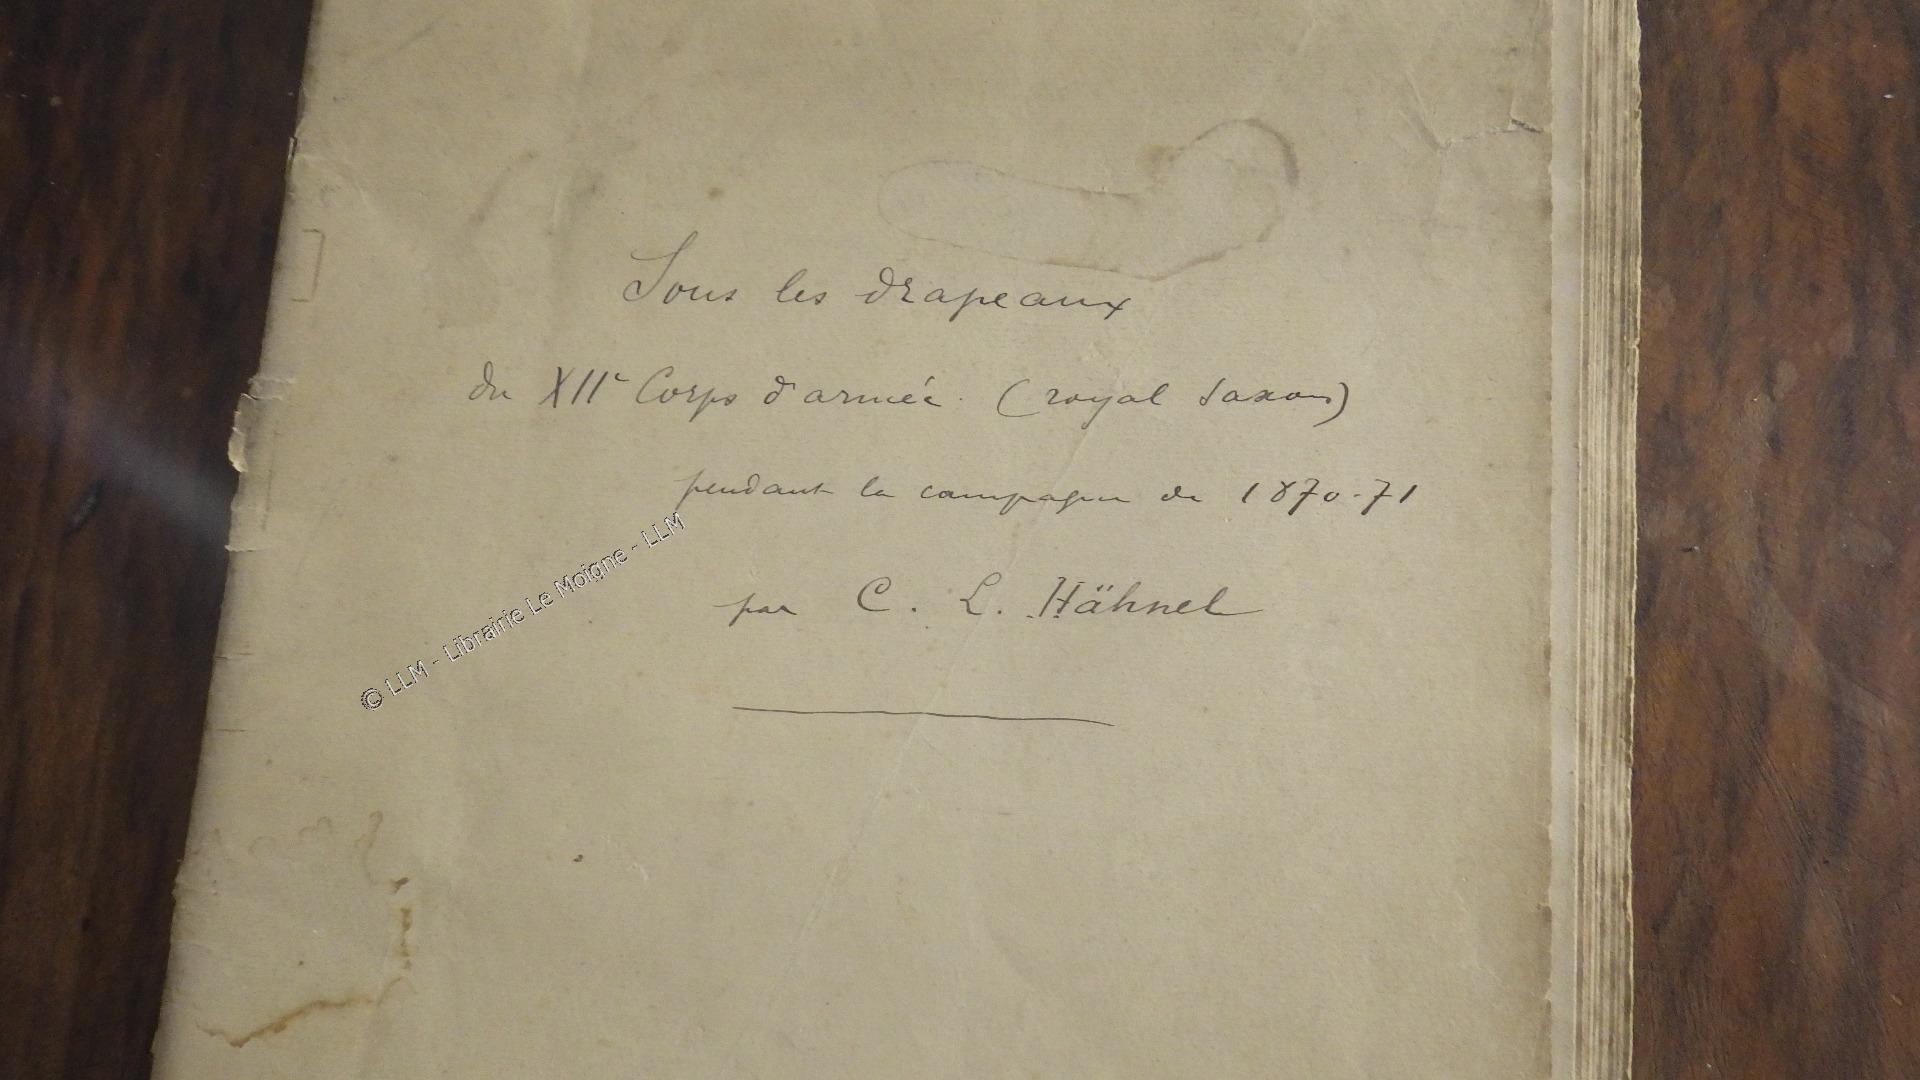 Sous les drapeaux
du XIIe Corps d'armée. (royal saxon)
pendant la campagne de 1870-71
par C. L. Hähnel
© LLM - Librairie Le Moigne - LLM